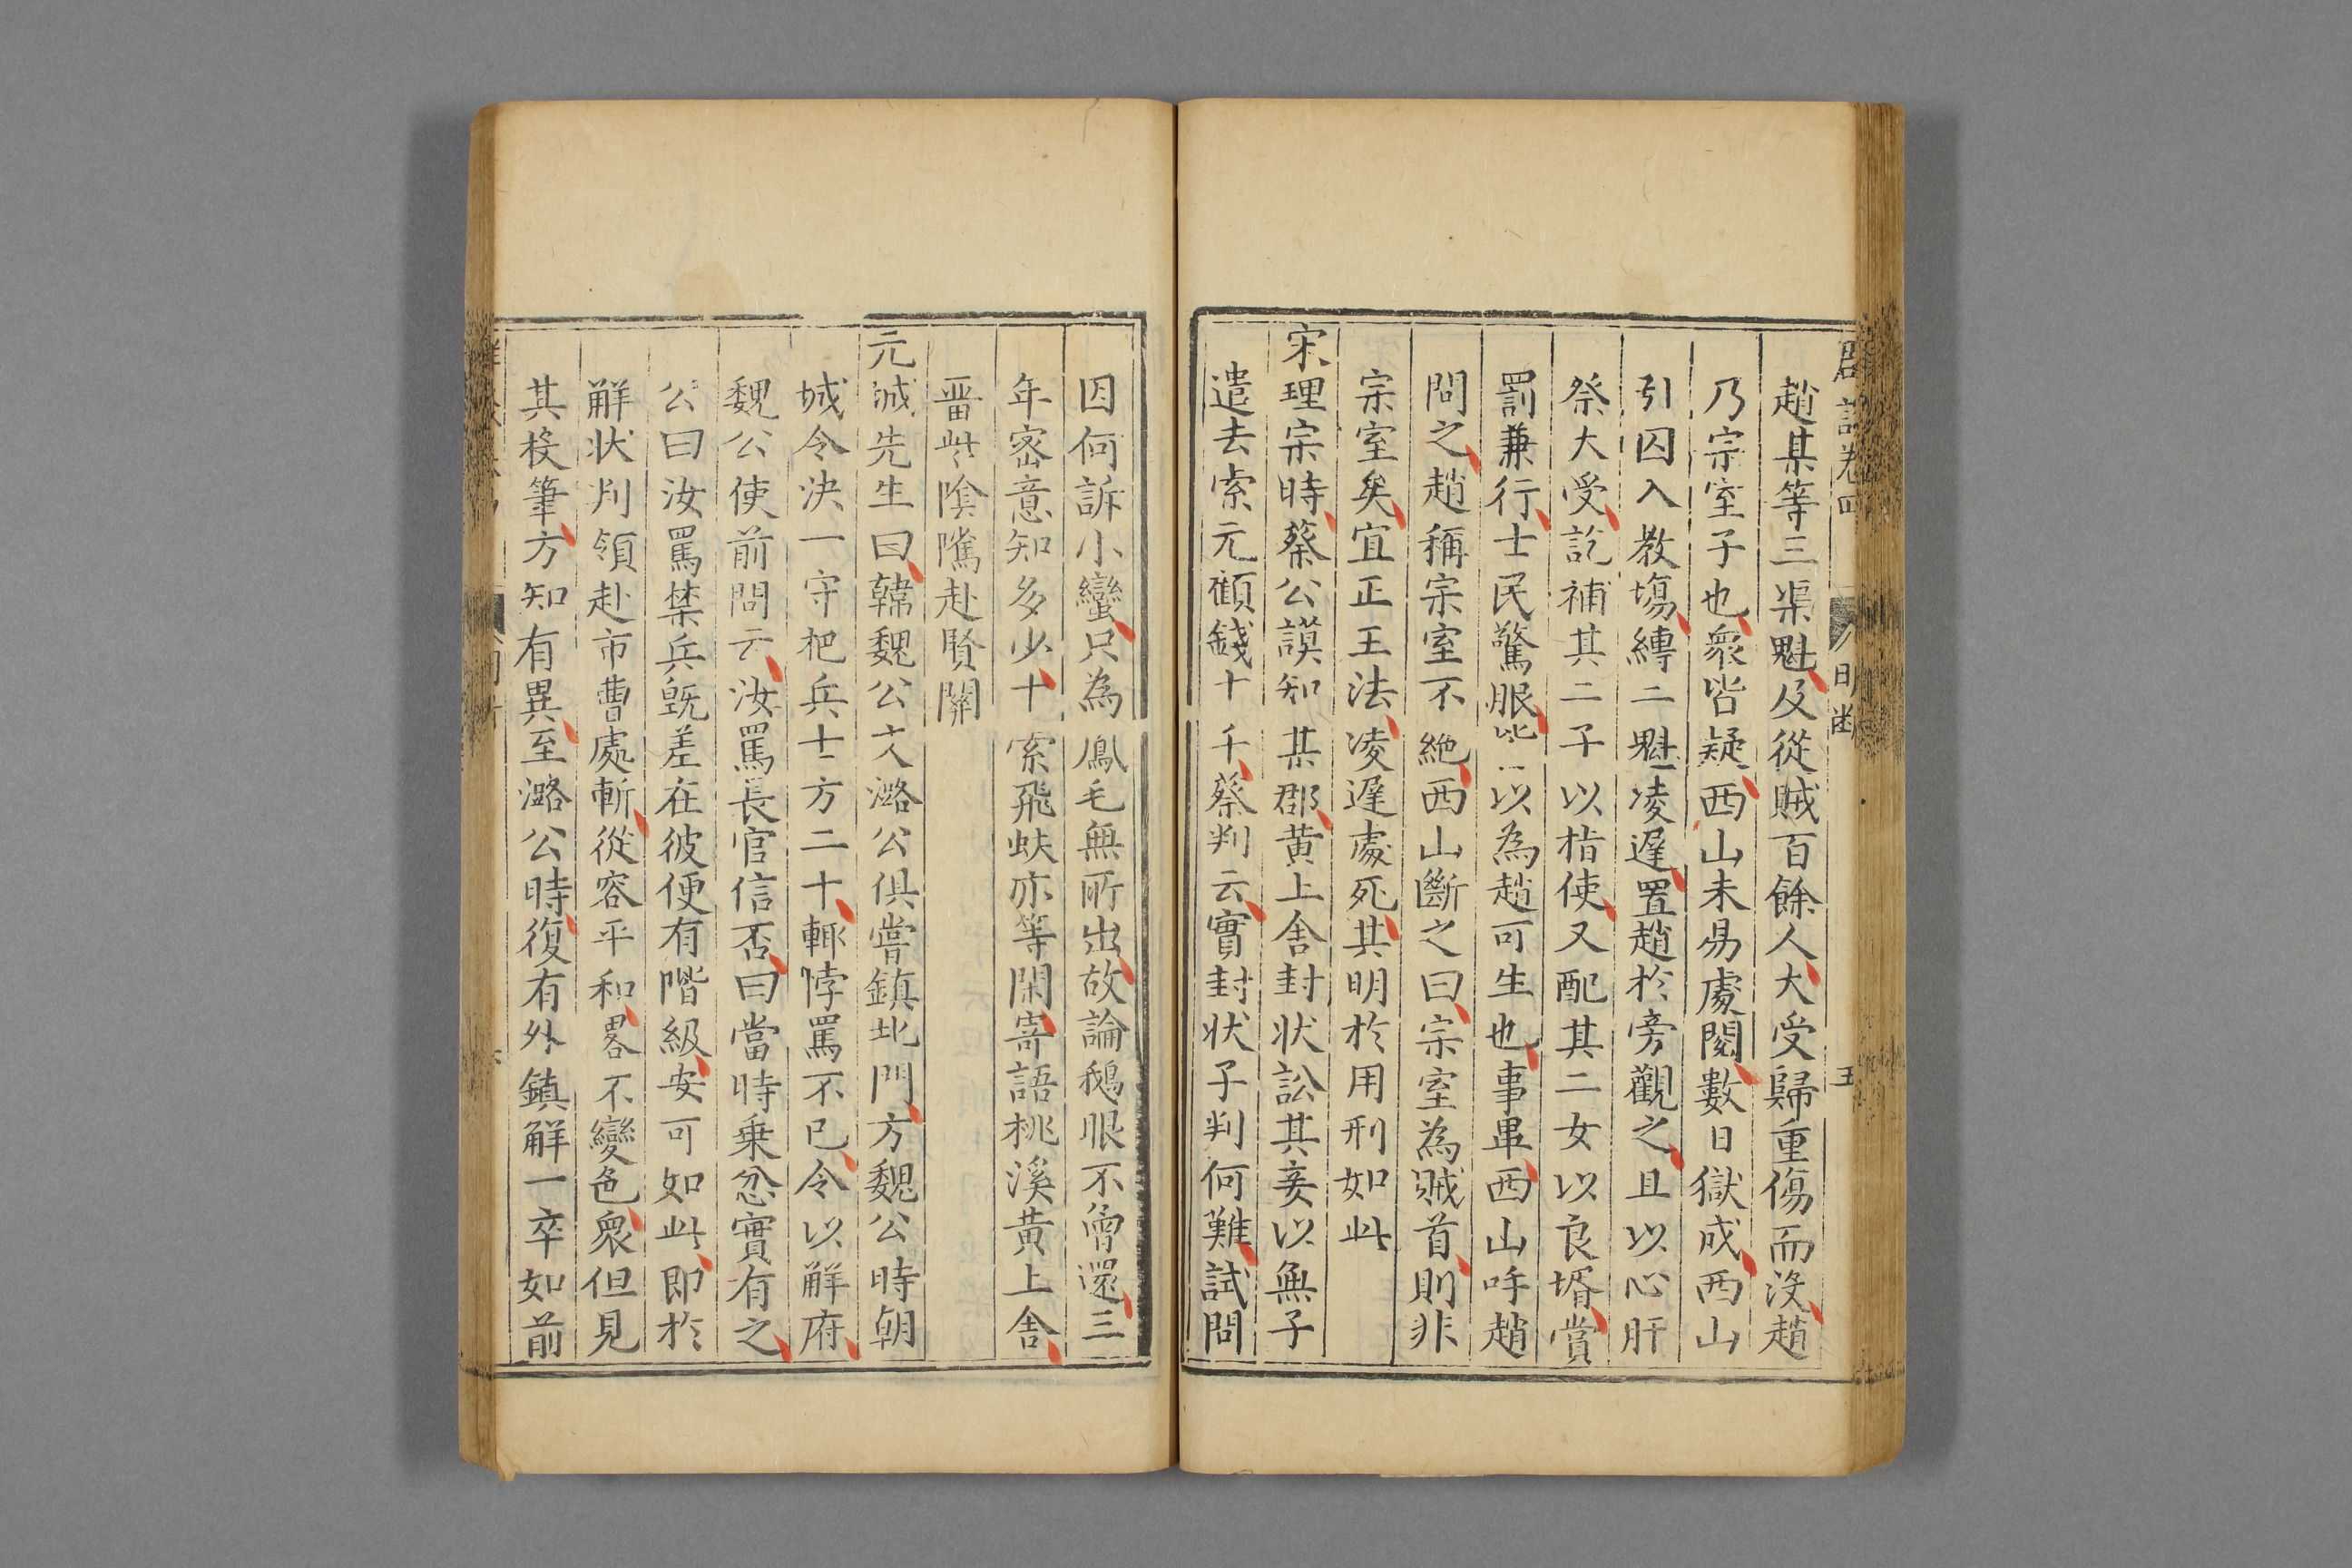 趙某等三渠魁及從賊百餘人大受歸重傷而沒趙
乃宗室子也衆皆疑西山未易處閱數日獄成西山
引囚入教塲縛二魁凌遲置趙於旁觀之且以心肝
祭大受訖補其二子以指使又配其二女以良壻賞
罰兼行士民驚服 以為趙可生也事畢西山呼趙
問之趙稱宗室不絶西山斷之曰宗室為賊首則非
宗室矣宜正王法凌遲處死其明於用刑如此
宋理宗時蔡公謨知某郡黄上舍封状訟其妾以無子
遣去索元顧錢十千蔡判云實封状子判何難試問
因何訴小蠻只為鳳毛無所出故論鵝眼不曾還三
年宻意知多少十索飛蚨亦等閑寄語桃溪黄上舍
畱此隂隲赴賢關
元城先生曰韓魏公文潞公俱嘗鎮北門方魏公時朝
城令决一守把兵士方二十輙悖罵不已令以解府
魏公使前問云汝罵長官信否曰當時乗忿實有之
公曰汝罵禁兵既差在彼便有階級安可如此即於
解状判領赴市曹處斬從容平和畧不變色衆但見
其投筆方知有異至潞公時復有外鎮解一卒如前